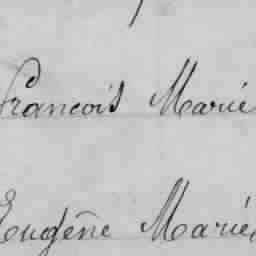 François Marie
Eugène Marie